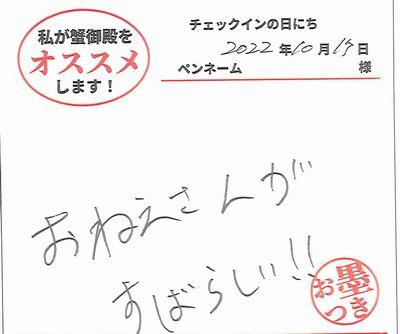 私が蟹御殿を
オススメ
します!
チェックインの日にち
2022年10月17日
ペンネーム 様
おねえさんが
すばらしい!!
お墨
つき